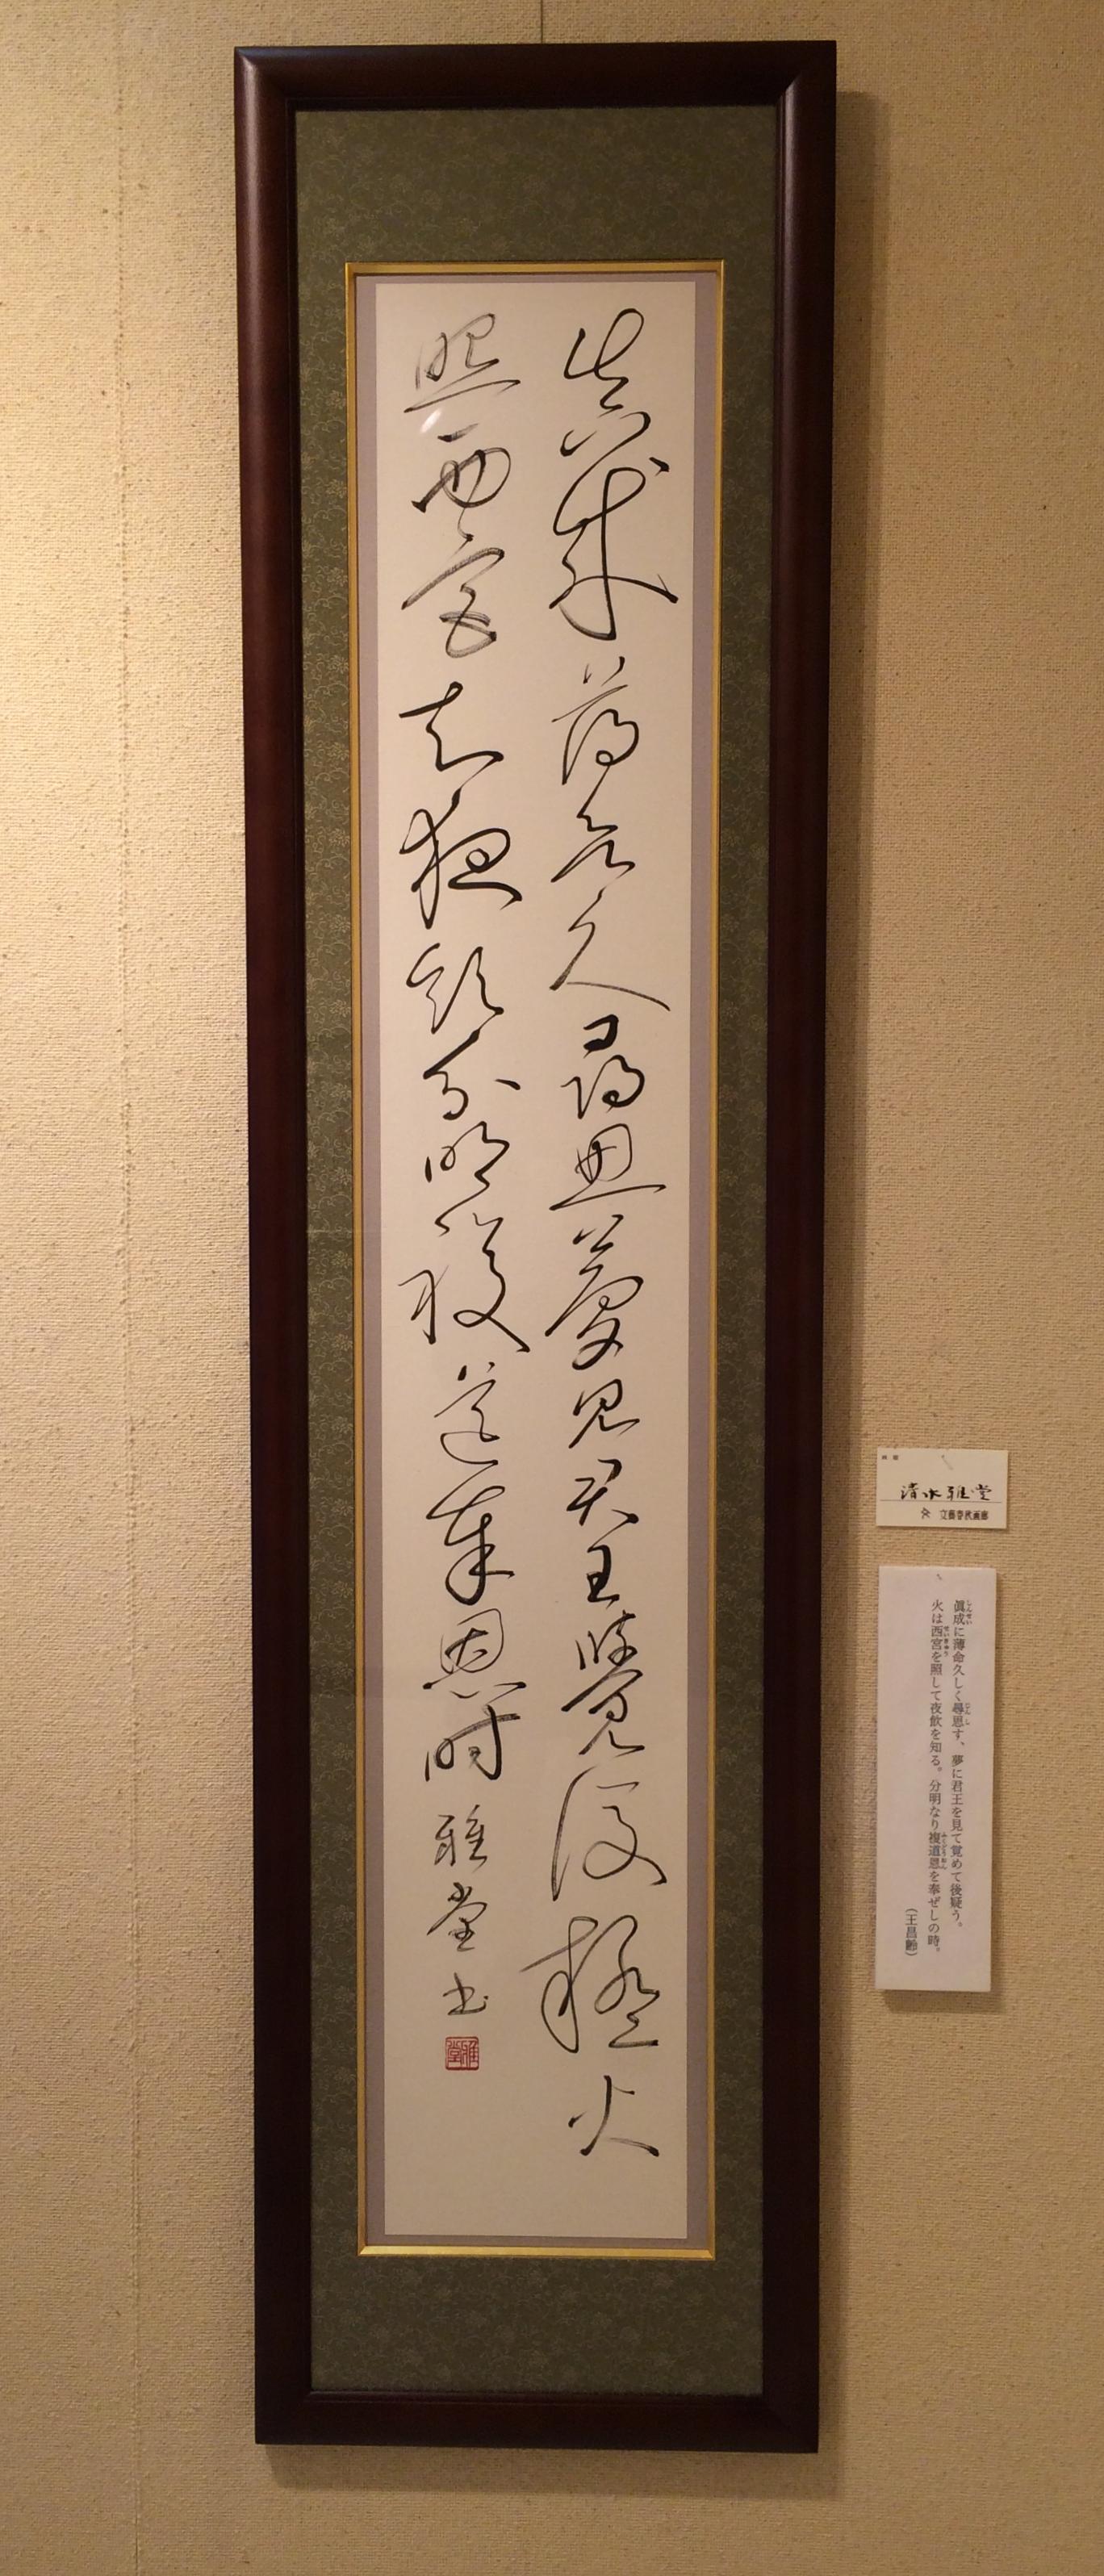 真成薄命久尋思夢見君王覺後疑火
照西宮知夜飲分明複道奉恩時 雅堂書
雅堂
清水雅堂
文藝春秋画廊
眞成に薄命久しく尋思す、夢に君王を見て覚めて後疑う。
火は西宮を照して夜飲を知る。分明なり複道恩を奉ぜしの時。
(王昌齢)